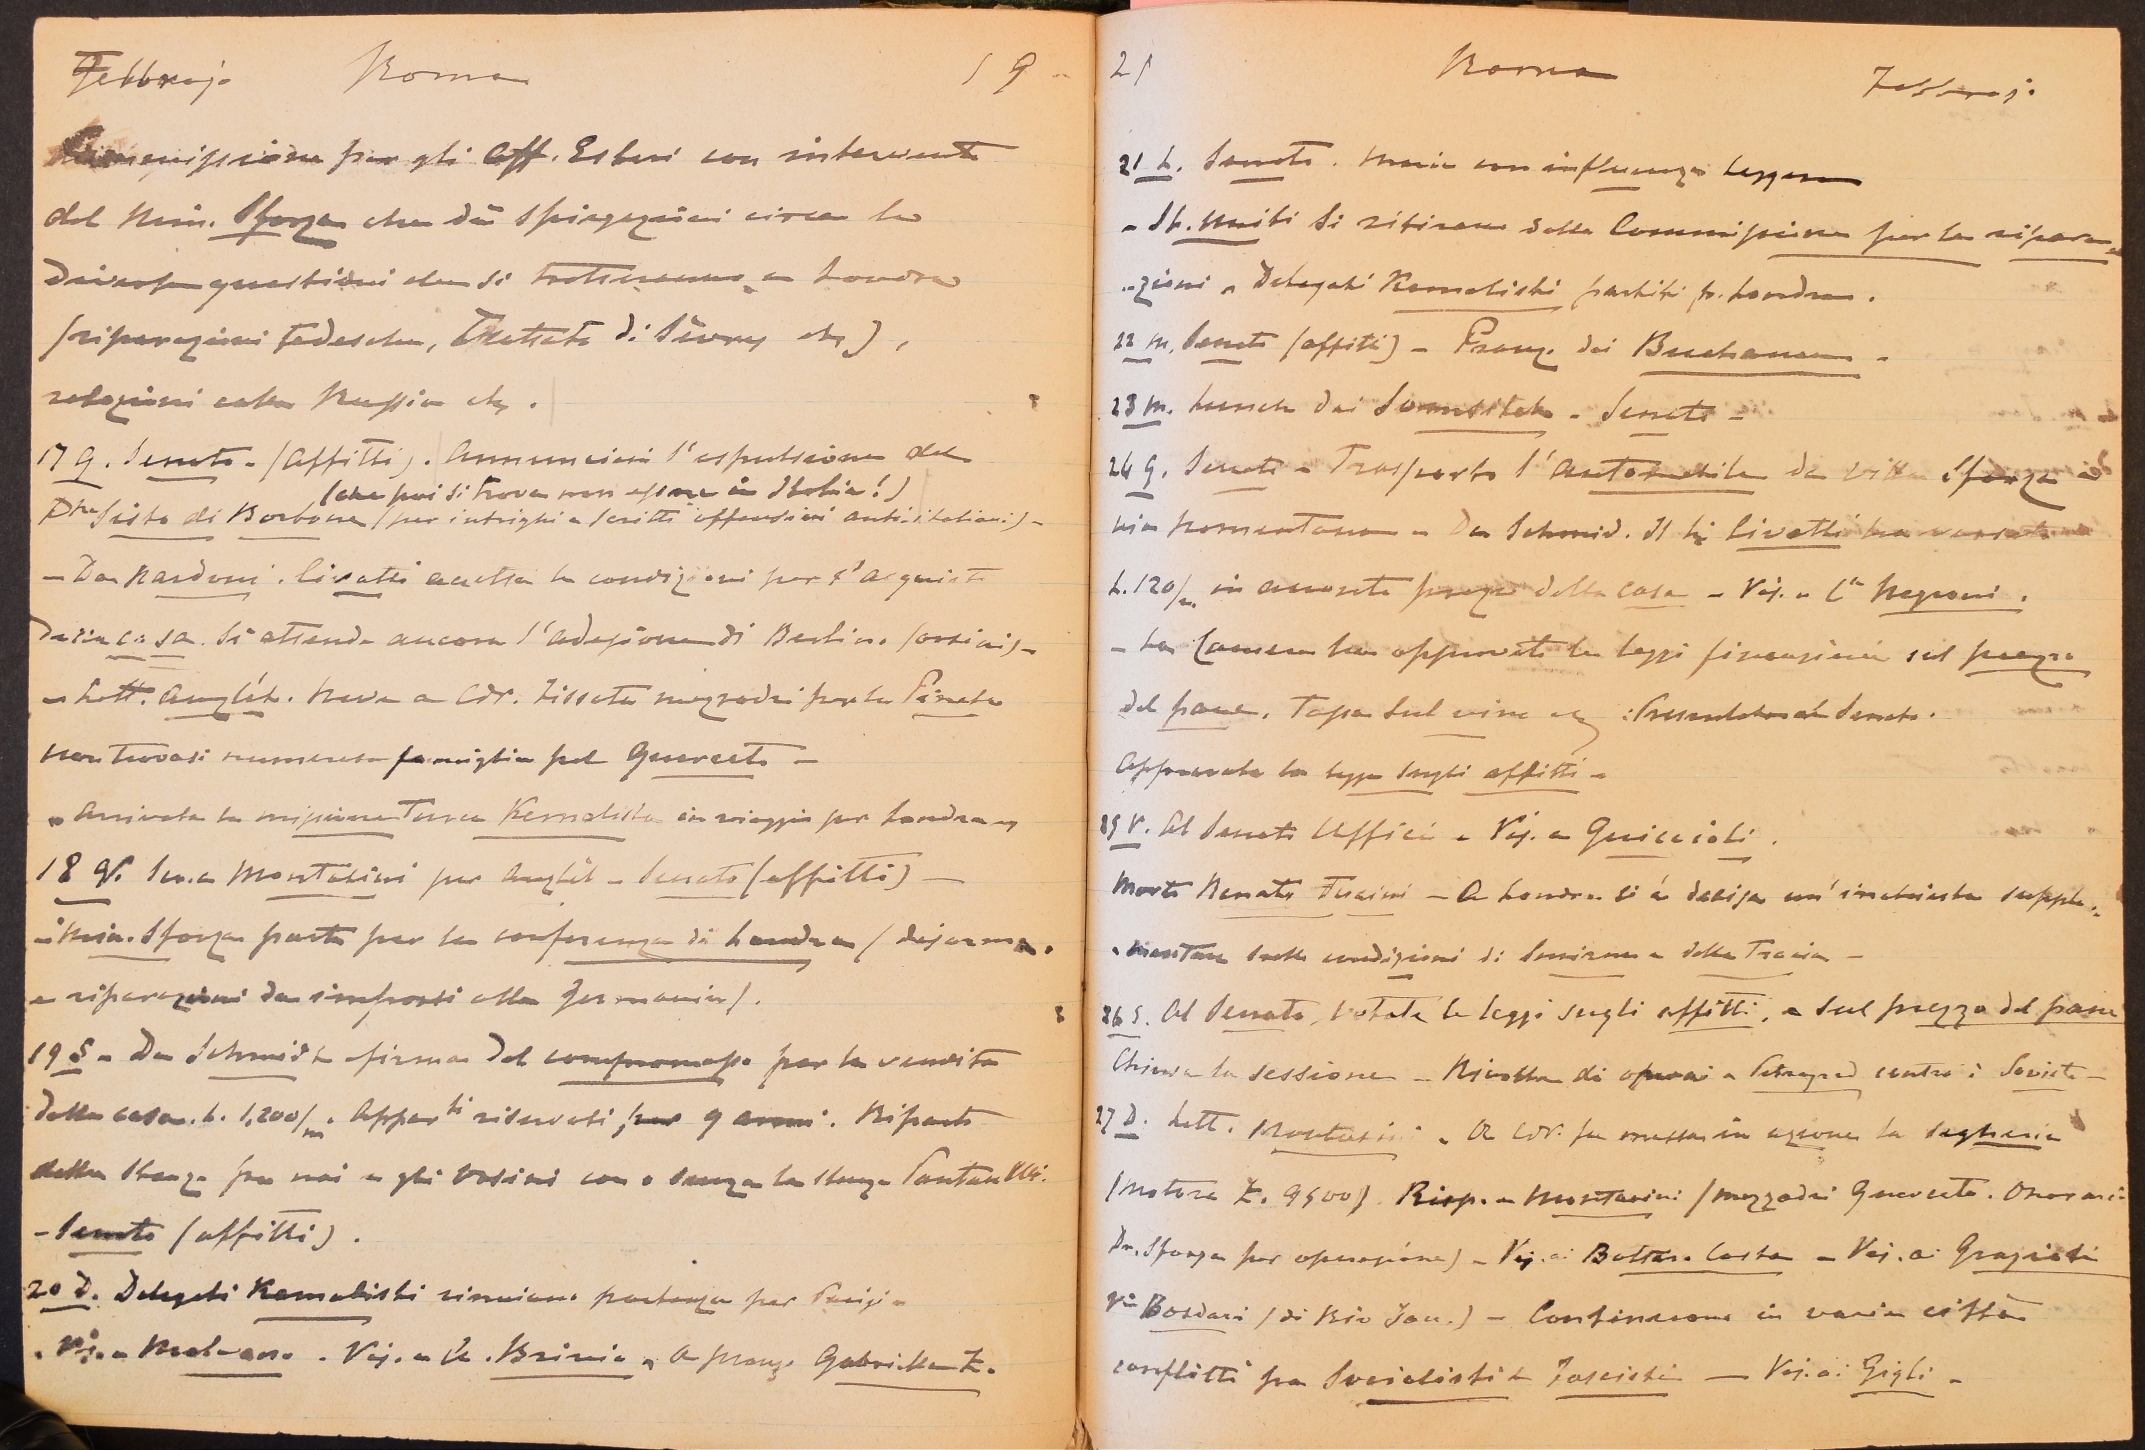 Febbrajo Roma 19
Commissione per gli Aff. Esteri con intervento
del Min. Sforza che dà spiegazioni circa le
diverse questioni che si tratteranno a Londra
(riparazioni tedesche, Trattato di Sèvres etc),
relazioni colla Russia etc.
17 G. Senato - (Affitti). Annunciasi l'espulsione del
(che poi si trova non essere in Italia!)
Pne Sisto di Borbone (per intrighi e scritti offensivi anti-italiani) -
- Da Nardoni. Civatti accetta le condizioni per l'acquisto
casa. Si attende ancora l'adesione di Berlino (orsini) -
- Lett. Anglét. Neve a CdV. Fissato mezzadri per la Pineta
non trovasi numerosa famiglia pel Querceto -
- Arrivata la missione Turca Kemalista in viaggio per Londra
18 V. Scr. a Montasini per Anglét - Senato (affitti) -
- Min. Sforza parte per la conferenza di Londra (disarmo
e riparazioni da imporsi alla Germania).
19 S - Da Schmid e firma del compromesso per la vendita
della casa. L. 1,200/m. Apparti riservati per 9 anni. Riparto
delle stanze fra noi e gli Orsini con o senza la stanza Pantanelli.
- Senato (affitti).
20 D. Delegati Kemalisti rinviano partenza per Parigi -
- Vis. a Malvano. Vis. a Brinio - A pranzo Gabriella Z.
21 Roma Febbrajo
21 L. Senato. Maria con influenza leggera
- St. Uniti si ritirano dalla Commissione per le ripara-
-zioni - Delegati Kemalisti partiti p. Londra.
22 M. Senato (affitti) - Pranz. dai Buchanan -
23 M. Lunch dai Sonnsitch - Senato -
24 G. Senato - Trasporto l'automobile da villa Sforza a
via Nomentana - Da Schmid. Il Sig Civatti ha versato
L. 120/m in acconto prezzo della casa - Vis. a Ca Negroni.
- La Camera ha approvato le leggi finanziarie sul prezzo
del pane. Tassa sul vino : Presentate al Senato.
Approvata la legge sugli affitti -
25 V. Al Senato Uffici - Vis. a Guiccioli.
Morto Renato Fucini - A Londra si è decisa un'inchiesta supple-
-mentare sulle condizioni di Smirne e della Tracia -
26 S. Al Senato, votate le leggi sugli affitti, e sul prezzo del pane
Chiusa la sessione - Rivolta di operai a Petrograd contro i Soviets -
27 D. Lett. Montasini - A CdV. fu messa in azione la segheria
(motore Z. 9500) Risp. a Montasini (mezzadri Querceto. Onorari
Dr. Sforza per operazione) - Vis. ai Bottar. Costa - Vis. ai Grazioli
Bosdari (di Rio Jan.) - Continuano in varie città
conflitti fra Socialisti e Fascisti - Vis. ai Gigli -